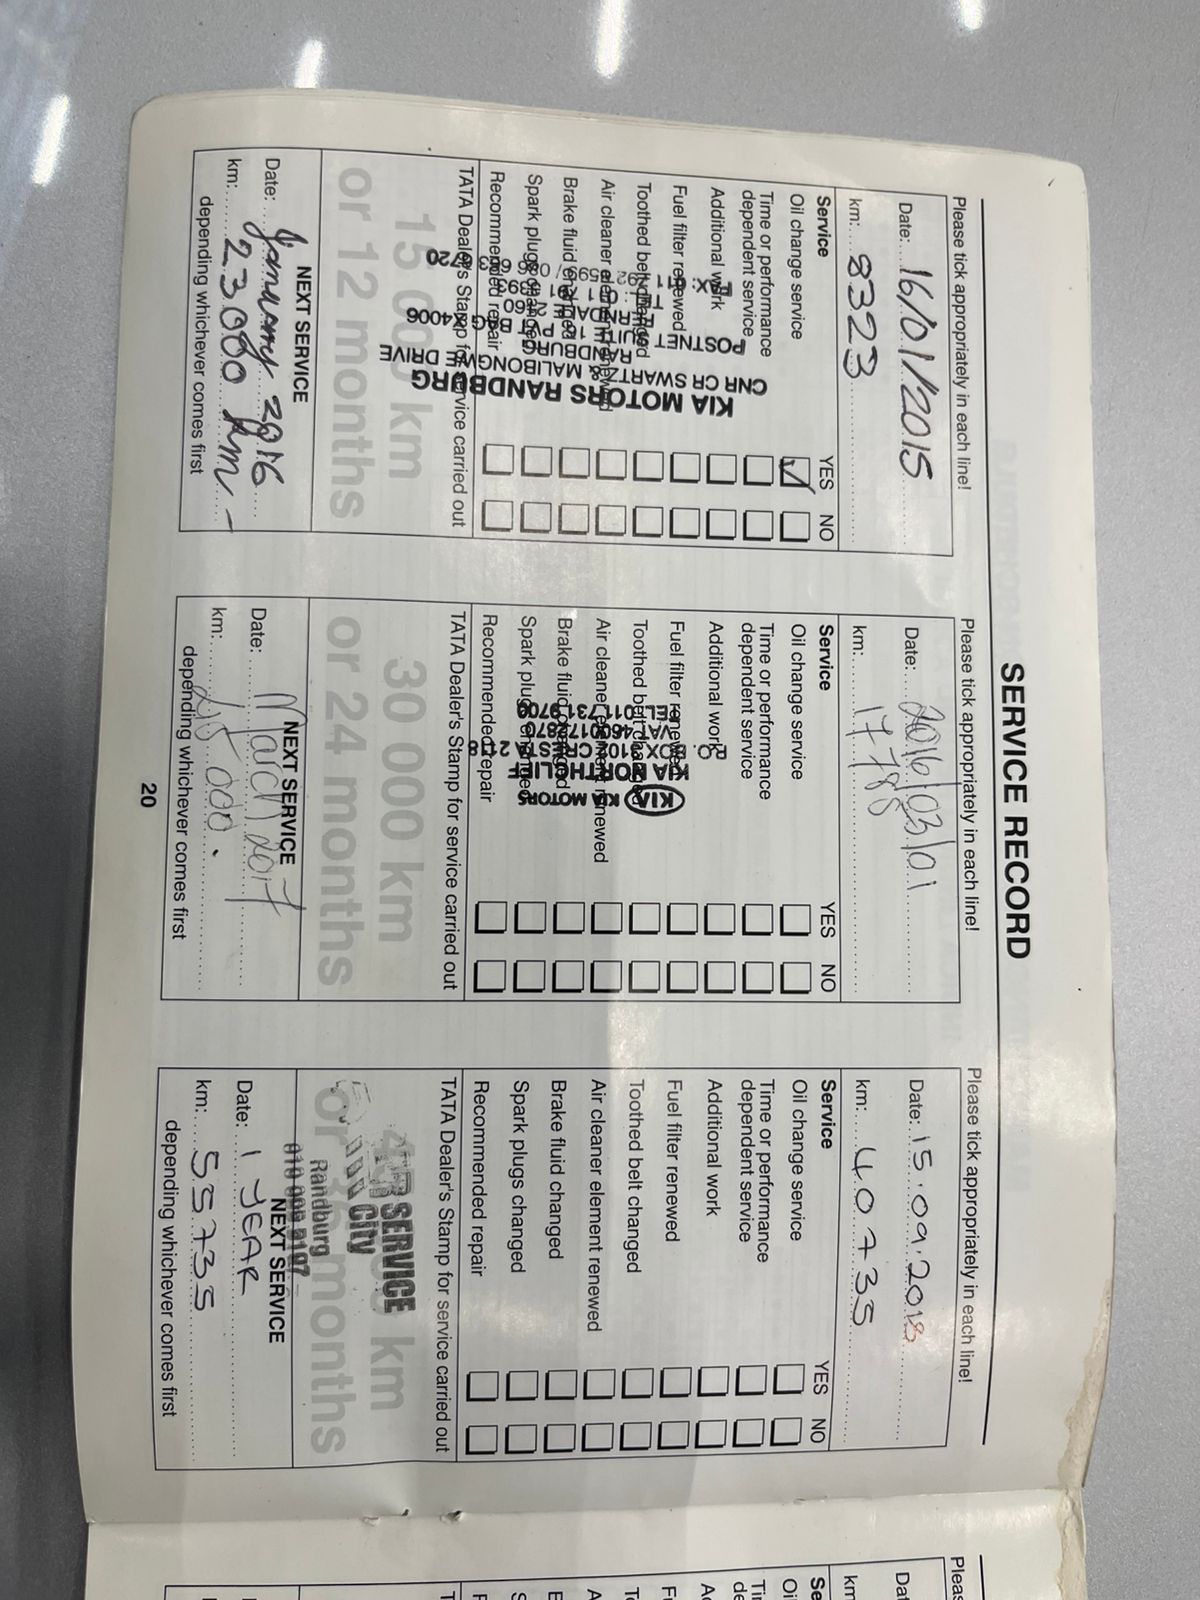 SERVICE RECORD
Please tick appropriately in each line!
Date: 16/01/2015
km: 8323
Service YES NO
Oil change service
Time or performance
dependent service
Additional work
Fuel filter renewed
Toothed belt changed
Air cleaner element renewed
Brake fluid changed
Spark plugs changed
Recommended repair
KIA MOTORS RANDBURG
CNR CR SWARTZ & MALIBONGWE DRIVE
RANDBURG
POSTNET SUITE
BAG X4006
FERNDALE 2160
TATA Dealer's Stamp for service carried out
15 000 km
or 12 months
NEXT SERVICE
Date: January 2016
km: 23000 km
depending whichever comes first
Please tick appropriately in each line!
Date: 2016/03/01
km: 17788
Service YES NO
Oil change service
Time or performance
dependent service
Additional work
Fuel filter renewed
Toothed belt changed
Air cleaner element renewed
Brake fluid changed
Spark plugs changed
Recommended repair
KIA KIA MOTORS
KIA NORTHCLIFF
P.O. BOX CRESTA 2118
TATA Dealer's Stamp for service carried out
30 000 km
or 24 months
NEXT SERVICE
Date: March 2017
km: 45 000.
depending whichever comes first
Please tick appropriately in each line!
Date: 15.09.2018
km: 40735
Service YES NO
Oil change service
Time or performance
dependent service
Additional work
Fuel filter renewed
Toothed belt changed
Air cleaner element renewed
Brake fluid changed
Spark plugs changed
Recommended repair
TATA Dealer's Stamp for service carried out
km
SERVICE
City
months
Randburg
NEXT SERVICE
Date: 1 YEAR
km: 55735
depending whichever comes first
20